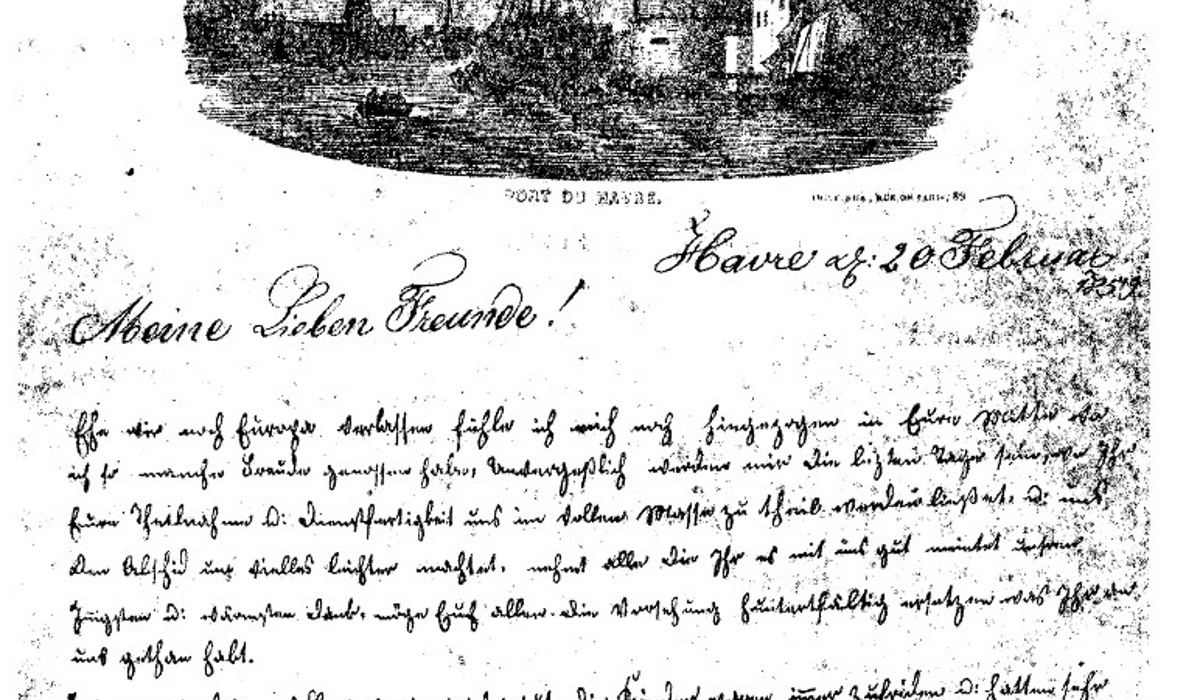 PORT DU HAVRE.
Havre d: 20 Februar
1859.
Meine Lieben Freunde!
Ehe wir noch Europa verlassen fühle ich mich noch hingezogen in Eure Mitte wo
ich so manche Freude genossen habe, Unvergeßlich werden mir die lezten Tage sein, wo Ihr
Eure Theilnahme u: Dienstfertigkeit uns im vollen Masse zu theil werden ließet, u: uns
den Abschid um vielles leichter machtet, nehmt alle die Ihr es mit uns gut meintet unsern
u: wärmsten Dank, möge Euch allen die Vorsehung hundertfältig ersetzen was Ihr an
uns gethan habt.
die Kinder waren immer zufrieden u: hatten sehr